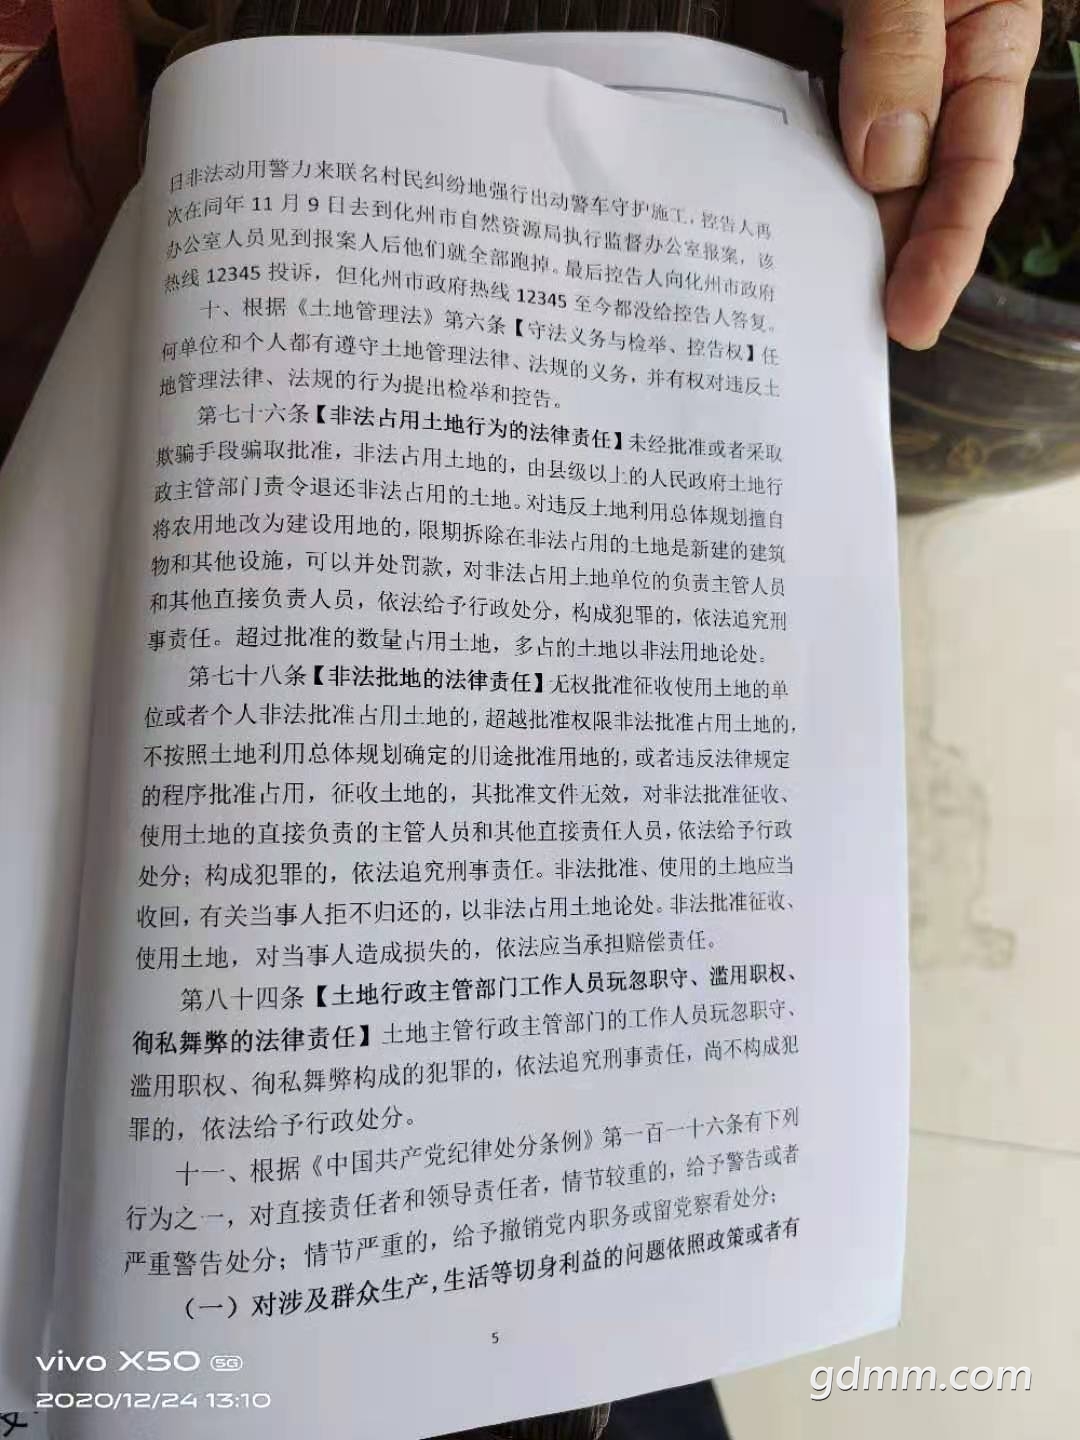 日非法动用警力来联名村民纠纷地强行出动警车守护施工，控告人再
次在同年 11 月 9 日去到化州市自然资源局执行监督办公室报案，该
办公室人员见到报案人后他们就全部跑掉。最后控告人向化州市政府
热线 12345 投诉，但化州市政府热线 12345 至今都没给控告人答复。
十、根据《土地管理法》第六条【守法义务与检举、控告权】任
何单位和个人都有遵守土地管理法律、法规的义务，并有权对违反土
地管理法律、法规的行为提出检举和控告。
第七十六条【非法占用土地行为的法律责任】未经批准或者采取
欺骗手段骗取批准，非法占用土地的，由县级以上的人民政府土地行
政主管部门责令退还非法占用的土地。对违反土地利用总体规划擅自
将农用地改为建设用地的，限期拆除在非法占用的土地是新建的建筑
物和其他设施，可以并处罚款，对非法占用土地单位的负责主管人员
和其他直接负责人员，依法给予行政处分，构成犯罪的，依法追究刑
事责任。超过批准的数量占用土地，多占的土地以非法用地论处。
第七十八条【非法批地的法律责任】无权批准征收使用土地的单
位或者个人非法批准占用土地的，超越批准权限非法批准占用土地的，
不按照土地利用总体规划确定的用途批准用地的，或者违反法律规定
的程序批准占用，征收土地的，其批准文件无效，对非法批准征收、
使用土地的直接负责的主管人员和其他直接责任人员，依法给予行政
处分；构成犯罪的，依法追究刑事责任。非法批准、使用的土地应当
收回，有关当事人拒不归还的，以非法占用土地论处。非法批准征收、
使用土地，对当事人造成损失的，依法应当承担赔偿责任。
第八十四条【土地行政主管部门工作人员玩忽职守、滥用职权、
徇私舞弊的法律责任】土地主管行政主管部门的工作人员玩忽职守、
滥用职权、徇私舞弊构成的犯罪的，依法追究刑事责任，尚不构成犯
罪的，依法给予行政处分。
十一、根据《中国共产党纪律处分条例》第一百一十六条有下列
行为之一，对直接责任者和领导责任者，情节较重的，给予警告或者
严重警告处分；情节严重的，给予撤销党内职务或留党察看处分；
（一）对涉及群众生产，生活等切身利益的问题依照政策或者有
5
vivo X50 5G
2020/12/24 13:10
gdmm.com